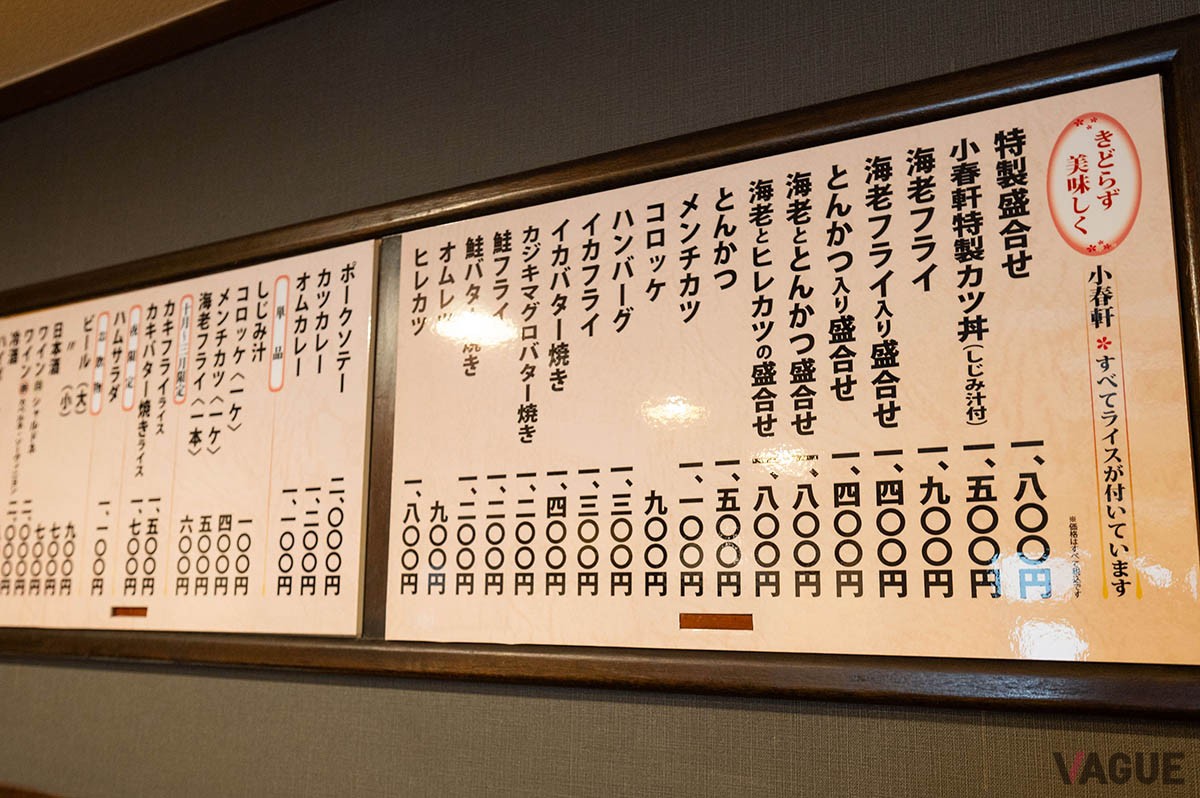 きどらず
美味しく
小春軒 すべてライスが付いています
※価格はすべて税込です
特製盛合せ 一、八〇〇円
小春軒特製カツ丼(しじみ汁付) 一、五〇〇円
海老フライ 一、九〇〇円
海老フライ入り盛合せ 一、四〇〇円
とんかつ入り盛合せ 一、四〇〇円
海老ととんかつ盛合せ 一、八〇〇円
海老とヒレカツの盛合せ 一、八〇〇円
とんかつ 一、五〇〇円
メンチカツ 一、一〇〇円
コロッケ 九〇〇円
ハンバーグ 一、三〇〇円
イカフライ 一、三〇〇円
イカバター焼き 一、四〇〇円
カジキマグロバター焼き 一、二〇〇円
鮭フライ 一、二〇〇円
鮭バター焼き 一、二〇〇円
オムレツ 九〇〇円
ヒレカツ 一、八〇〇円
ポークソテー 二、〇〇〇円
カツカレー 一、二〇〇円
オムカレー 一、一〇〇円
単品
しじみ汁 一〇〇円
コロッケ〈一ケ〉 四〇〇円
メンチカツ〈一ケ〉 五〇〇円
海老フライ〈一本〉 六〇〇円
十月〜三月限定
カキフライライス 一、五〇〇円
カキバター焼きライス 一、七〇〇円
夜限定
ハムサラダ 一、一〇〇円
お飲物
ビール(大) 九〇〇円
〃(小) 七〇〇円
日本酒 七〇〇円
ワイン
ワイン
冷酒
VAGUE